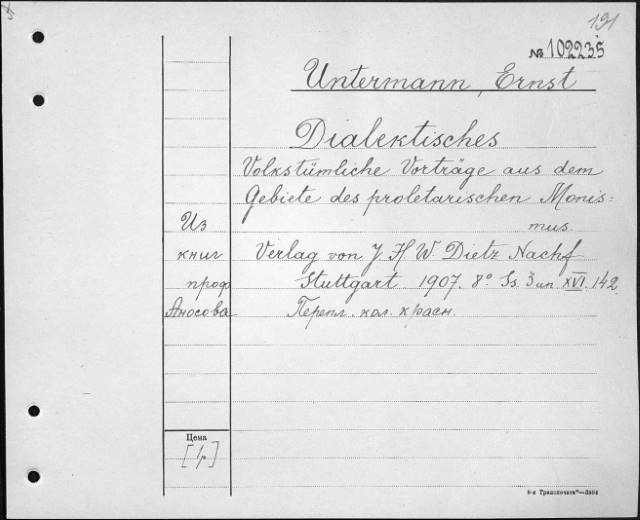 191
№ 102235
Untermann, Ernst
Dialektisches
Volkstümliche Vorträge aus dem
Gebiete des proletarischen Monis=
mus.
Из
книг
проф
Аносова
Verlag von J. H. W. Dietz Nachf
Stuttgart 1907. 8° Ss. 3 un XVI. 142
Перепл. кол. красн.
Цена
[1р]